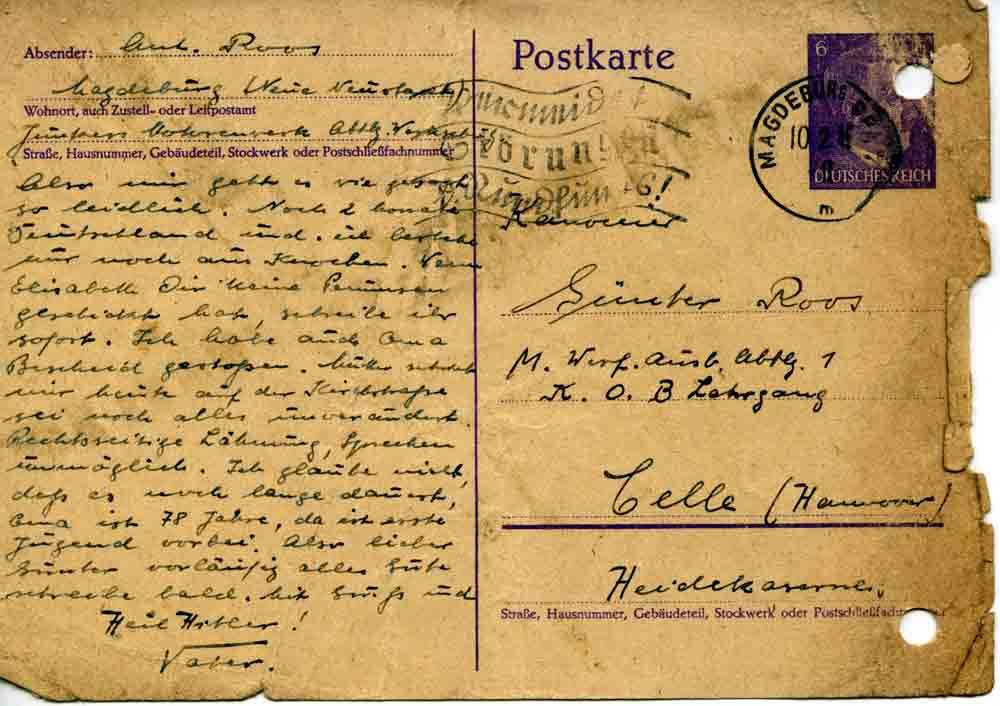 Absender: Ant. Roos
Magdeburg (Neue Neustadt)
Wohnort, auch Zustell- oder Leitpostamt
Junkers Motorenwerk Abtlg.
Straße, Hausnummer, Gebäudeteil, Stockwerk oder Postschließfachnummer
Also mir geht es wie gesagt
so leidlich. Noch 2 Monate
Deutschland und. ich bestehe
nur noch aus Knochen. Wenn
Elisabeth Dir keine Penunsen
geschickt hat, schreibe ihr
sofort. Ich habe auch Oma
Bescheid gestoßen. Mutter schreibt
mir heute auf der Kirchstraße
sei noch alles unverändert.
Rechtsseitige Lähmung, Sprechen
unmöglich. Ich glaube nicht,
daß es noch lange dauert,
Oma ist 78 Jahre, da ist erste
Jugend vorbei. Also lieber
Günter vorläufig alles Gute
schreibe bald. Mit Gruß und
Heil Hitler!
Vater.
Postkarte
6
MAGDEBURG
10
DEUTSCHES REICH
m
Kanonier
Günter Roos
M. Werf. Ausb. Abtlg. 1
K. O. B Lehrgang
Celle (Hannover)
Heidekaserne.
Straße, Hausnummer, Gebäudeteil, Stockwerk oder Postschließfachnummer